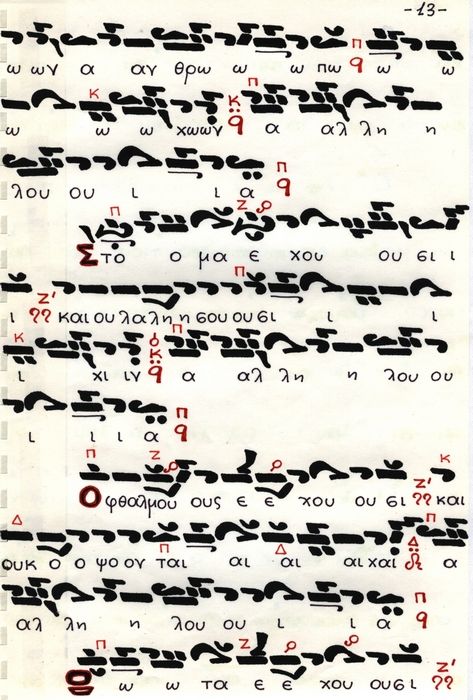 -13-
ω ων α αν θρω ω ω πω ω ω
ω ω ω χωων α αλ λη η
λου ου ι ι α
Στο ο μα ε χου ου σι ι
ι και ου λα λη η σου ου σι ι ι
ι χι ιν α αλ λη η λου ου
ι ι ι α
Ο φθαλμου ους ε ε χου ου σι και
ουκ ο ο ψο ον ται αι αι αι χαι α
αλ λη η λου ου ι ι α
Ω ω ω τα ε ε χου ου σι